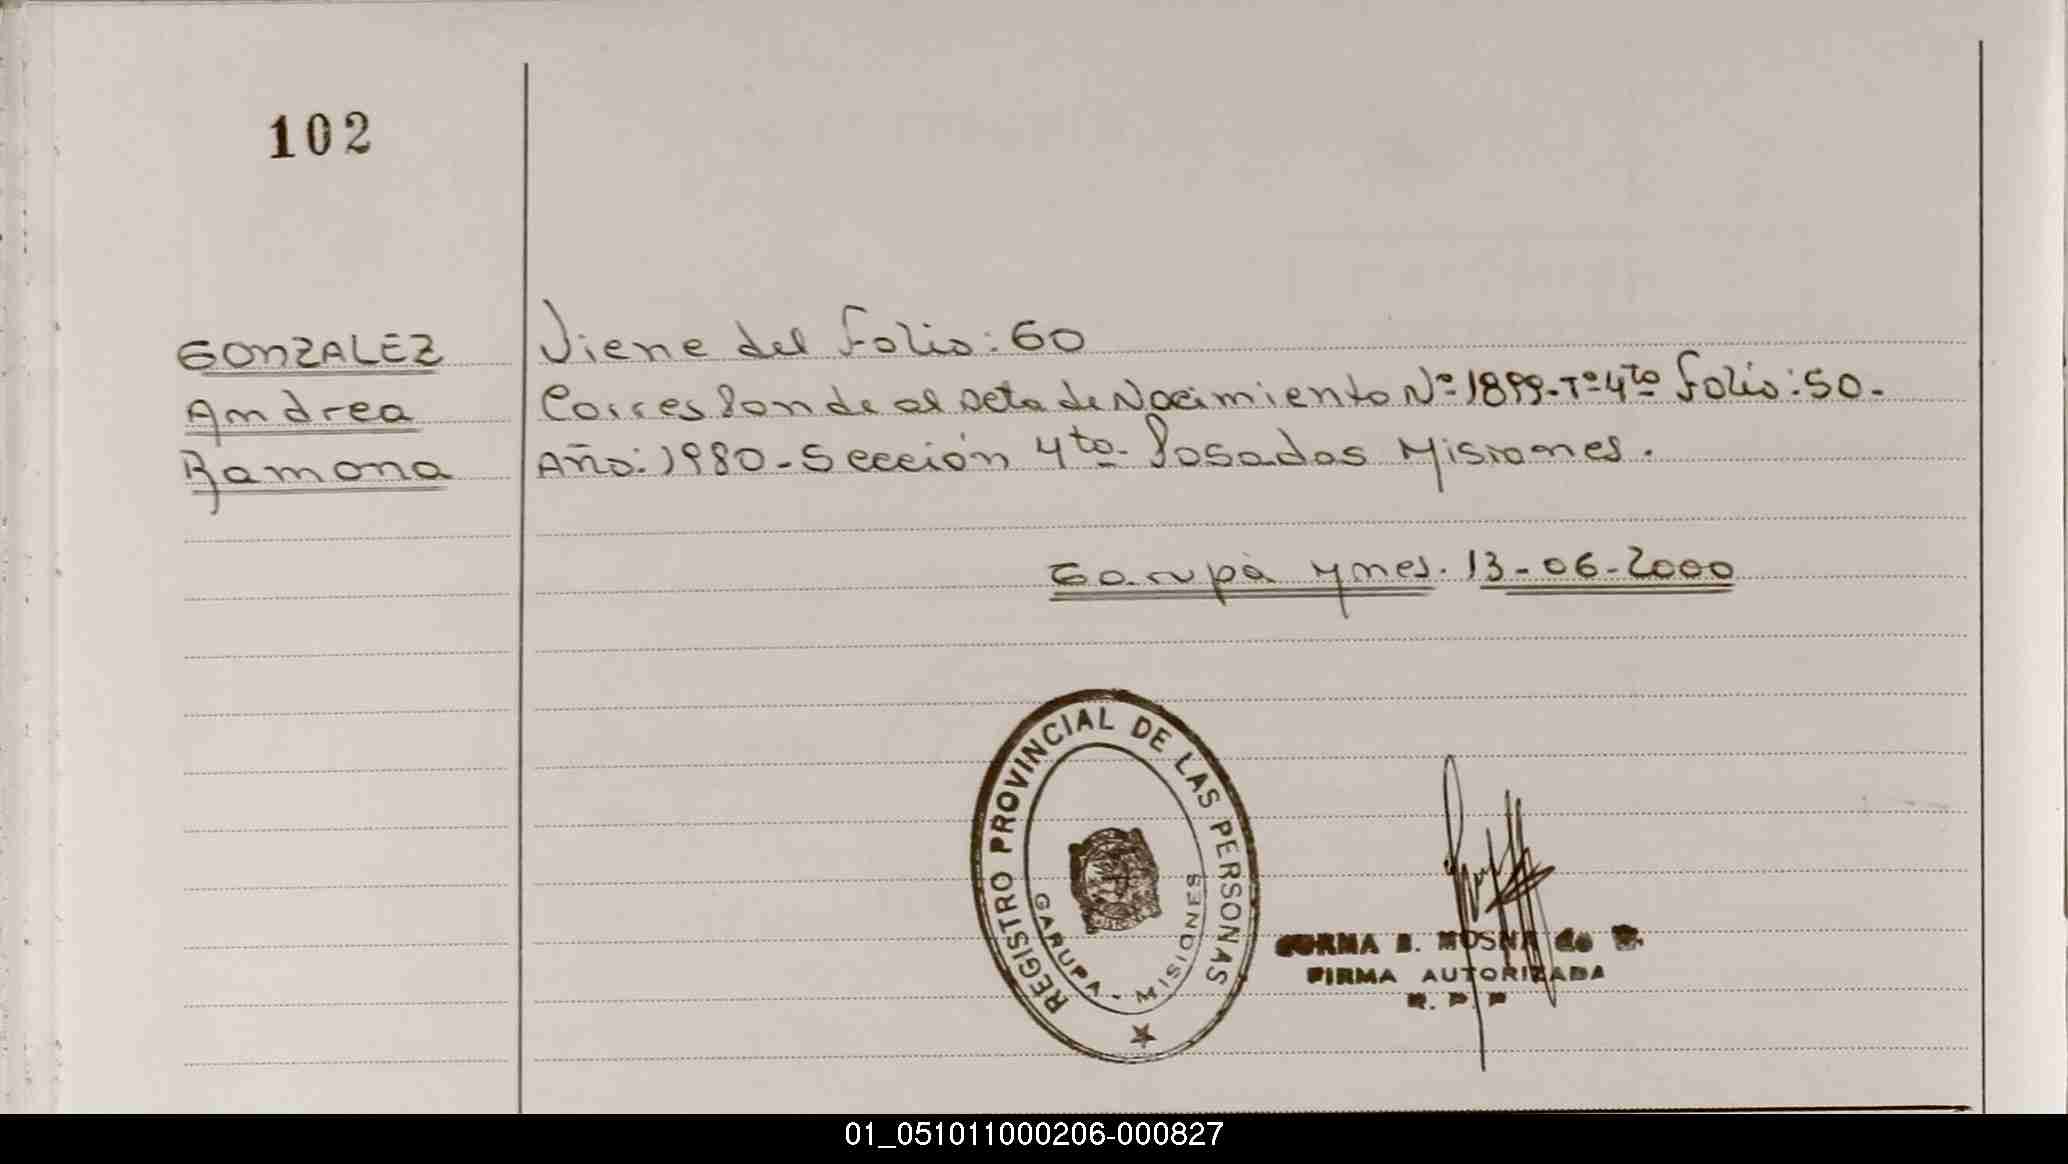 102
GONZALEZ
Andrea
Ramona
Viene del Folio: 60
Corresponde al Acta de Nacimiento Nº 1899-Tº 4to Folio: 50.
Año: 1980-Sección 4to- Posadas Misiones.
Garupá Mnes. 13-06-2000
REGISTRO PROVINCIAL DE LAS PERSONAS
GARUPA - MISIONES
B. MOSNA de
FIRMA AUTORIZADA
R. P. P
01_051011000206-000827